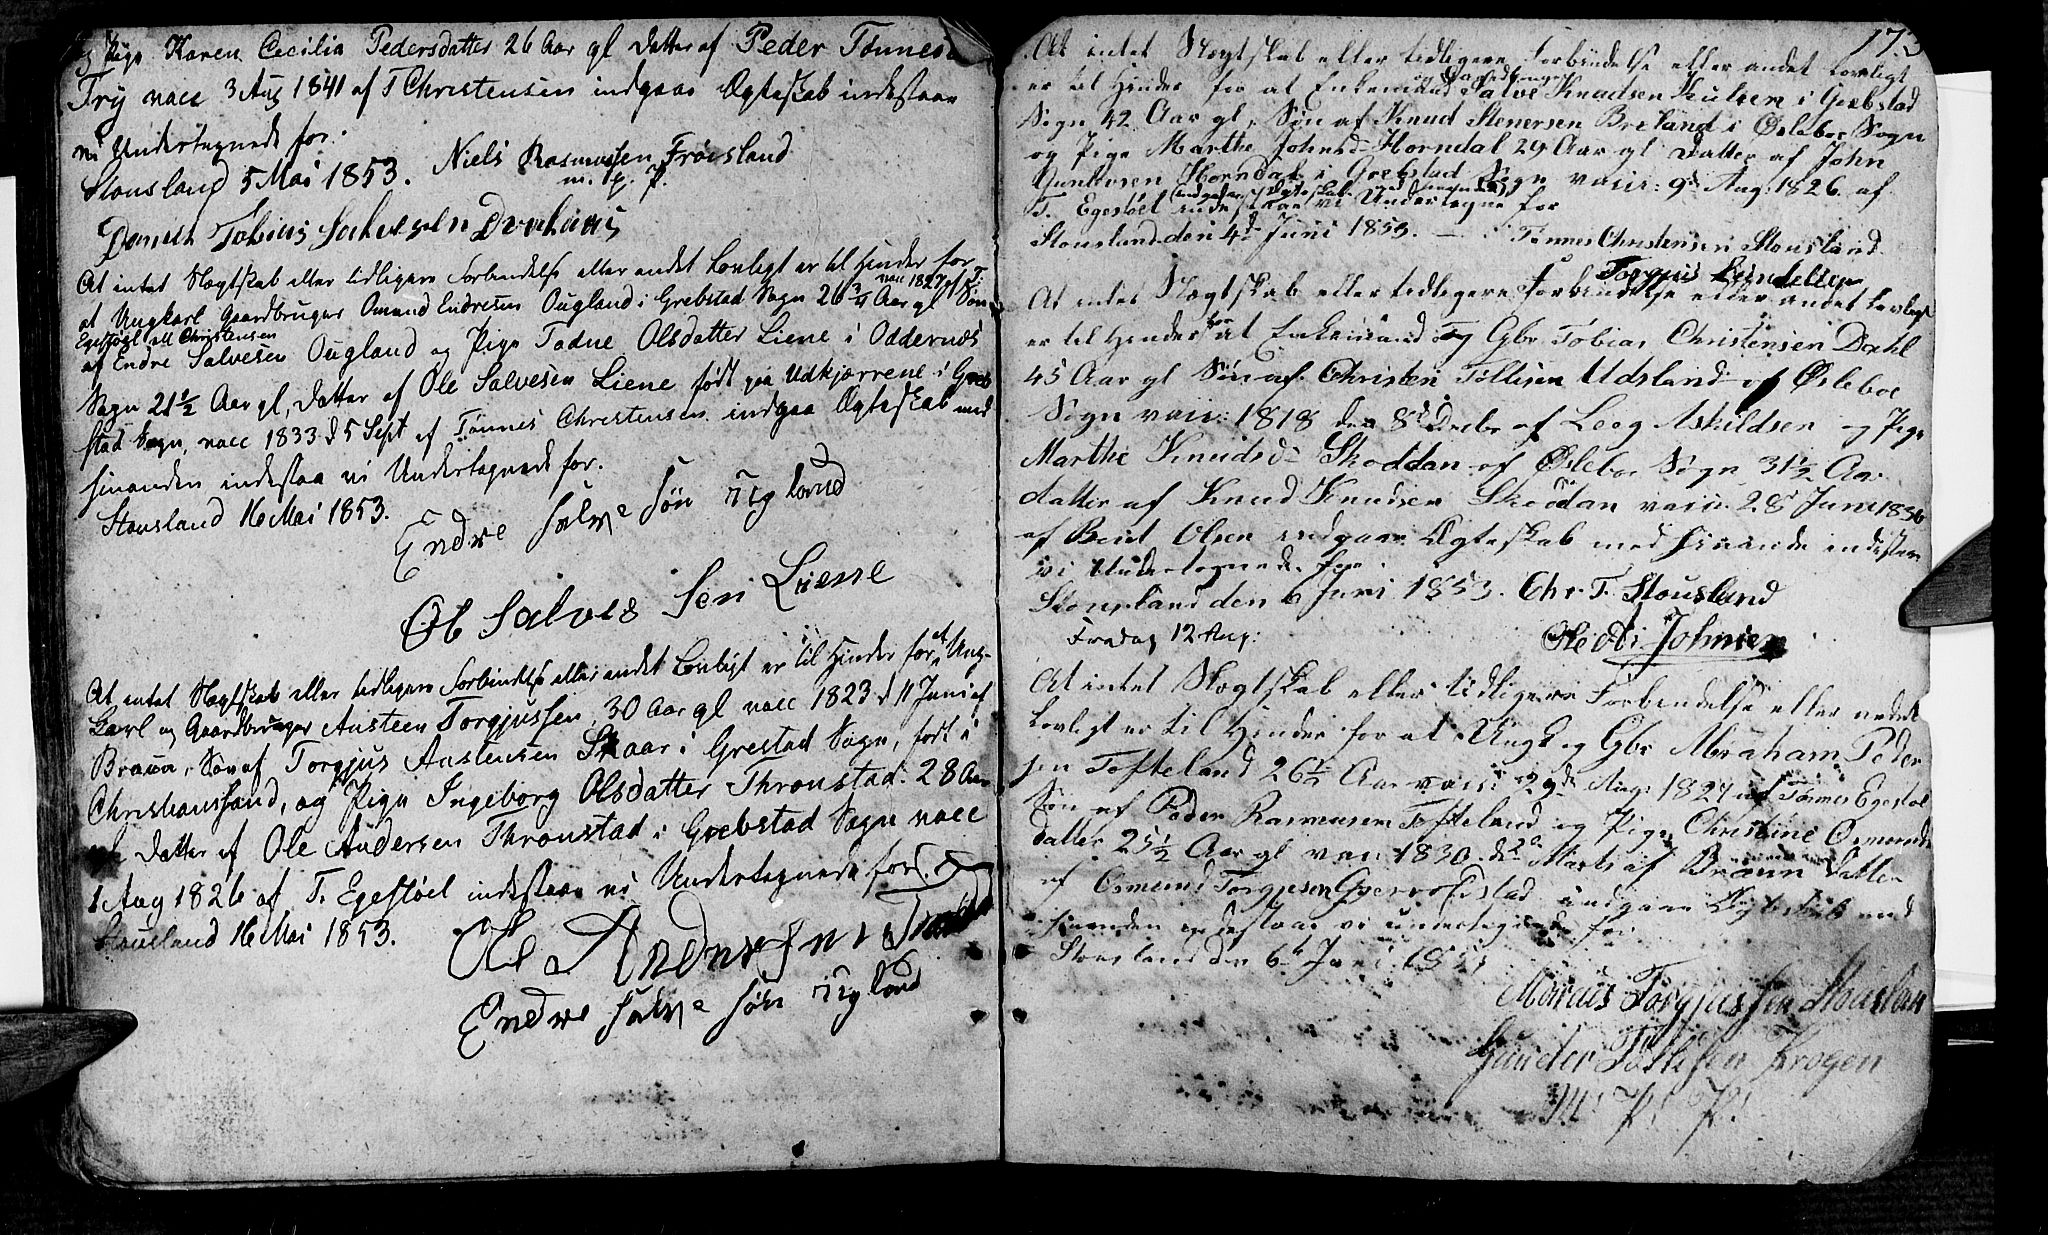 og Pige Karen Cecilia Pedersdatter 26 Aar gl Datter af Peder Tønnes
Try vacc 3 Aug 1841 af T Christensen indgaae Ægteskab indestaae
vi Undertegnede for.
Stousland 5 Mai 1853. Niels Rasmussen Frøisland
m. p. P.
Tobias Salvesen
At intet Slægtskab eller tidligere Forbindelse eller andet Lovligt er til Hinder for
vacc 1827 af T.
at Ungkarl Gaardbruger Omund Endresen Ougland i Grebstad Sogn 26 3/4 Aar gl Søn
Egestøl all Christensen
af Endre Salvesen Ougland og Pige Tadne Olsdatter Liene i Oddernæs
Sogn 21 1/2 Aar gl, Datter af Ole Salvesen Liene født paa Udkjærrene i Greb
stad Sogn, vacc 1833 d 5 Sept af Tønnes Christensen indgaa Ægteskab med
hinanden indestaa vi Undertegnede for.
Stousland 16 Mai 1853.
Endre Salve søn Ug land
Ole Salves Sen Liene
At intet Slægtskab eller tidligere Forbindelse eller andet Lovligt er til Hinder for at Ung-
karl og Gaardbruger Austeen Torgjussen 30 Aar gl vacc 1823 d 11 Juni af
Braun, Søn af Torgjus Austensen Skaar i Grestad Sogn, født i
Christianssand, og Pige Ingeborg Olsdatter Thronstad 28 Aar
gl Datter af Ole Andersen Thronstad i Grebstad Sogn vacc
1 Aug 1826 af T. Egestøel indestaae vi Undertegnede for.
Stousland 16 Mai 1853.
Ole Andersen
Endre Salve søn Ug land
173
At intet Slægtskab eller tidligere Forbindelse eller andet Lovligt
er til Hinder for at Enkemand Salve Knudsen i Grebstad
Sogn 42 Aar gl, Søn af Knud Stenersen Breland i Øslebø Sogn
og Pige Marthe Johnsd Horndal 29 Aar gl Datter af John
Gundersen Horndal i Grebstad Sogn vacc: 9d Aug: 1826 af
indgaae Ægteskab
T. Egestøel indestaae vi Undertegnede for
Stousland den 4d Juni 1853. — Tønnes Christensen Stousland
Torgjus
At intet Slægtskab eller tidligere Forbindelse eller andet Lovligt
er til Hinder for at Enkemand og Gbr Tobias Christensen Dahl
45 Aar gl Søn af Christen Tollisen Udsland af Øslebøe
Sogn vacc: 1818 den 8d Decbr af Leeg Askildsen og Pige
Marthe Knudsd Skoddan af Øslebøe Sogn 31 1/2 Aar
datter af Knud Knudsen Skoddan vacc. 28 Juni 1836
af Bent Olsen indgaae Ægteskab med hinanden indestaae
vi Undertegnede for.
Stousland den 6 Juni 1853. Chr. T. Stousland
Fredag 12 Aug: Johnsen
At intet Slægtskab eller tidligere Forbindelse eller andet
Lovligt er til Hinder for at Ungk og Gbr Abraham Peder
sen Tofteland 26 1/2 Aar vacc: 29de Aug: 1827 af Tønnes Egestøl
Søn af Peder Rasmusen Tofteland og Pige Christine Osmunds
datter 25 1/2 Aar gl vac: 1830 d 2 Marts af Braun Datter
af Osmund Torgjusen indgaae Ægteskab med
hinanden indestaae vi undertegnede for
Stousland den 6te Juni 1853
Marcus Torgjussen Stousland
Gunder Tollisen Krogen
M. P. P.